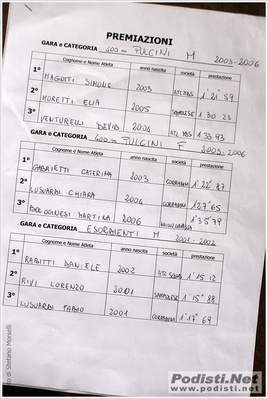 PREMIAZIONI
GARA e CATEGORIA 400 m PULCINI M 2003-2006
Cognome e Nome Atleta anno nascita società prestazione
1° MAGOTTI SIMONE 2003 1'21"59
2° MORETTI ELIA 2005 1'30 23
3° VENTURELLI DEVID 2004 1'33 43
GARA e CATEGORIA 400 m PULCINI F 2003-2006
Cognome e Nome Atleta anno nascita società prestazione
1° GABRIETTI CATERINA 2003 CORRADINI 1'22" 87
2° LUSUARDI CHIARA 2004 CORRADINI 1'27"65
3° BOLOGNESI MARTINA 2006 1'35"79
GARA e CATEGORIA ESORDIENTI M 2001-2002
Cognome e Nome Atleta anno nascita società prestazione
1° RABITTI DANIELE 2002 1'15 12
2° RIVI LORENZO 2001 SAMPOLESE 1'15" 88
3° LUSUARDI FABIO 2001 CORRADINI 1'17" 69
Foto di Stefano Morselli
Podisti.Net
www.podisti.net